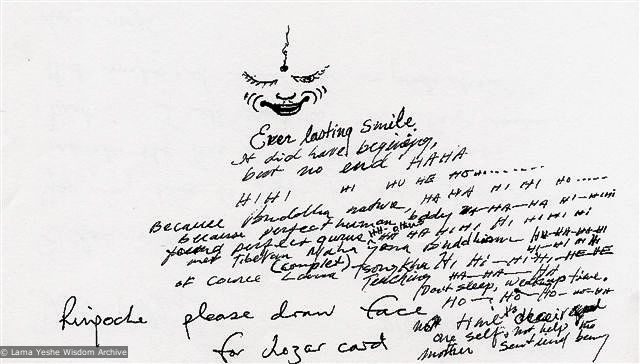 Ever lasting smile
It did have begining,
but no end HAHA
HIHI HI HU HE HO HO.........
Because Buddha nature, HA HA HI HI HO.....
because perfect human body HA-HA-HA HI-HIHI
perfect gurus HA HA HIHI, HI HIHI HI
met Tibetan Mahayana Buddhism
(complet)
of cource Lama Tsong Khapa HI HI-HI HI-HE-HE
Teaching HA-HA-HA
Dont sleep, time.
HO-HO-HO-HO-HA
not time
one self, not help the
mother sentiend being
Rinpoche please draw face
for Lozar card
© Lama Yeshe Wisdom Archive